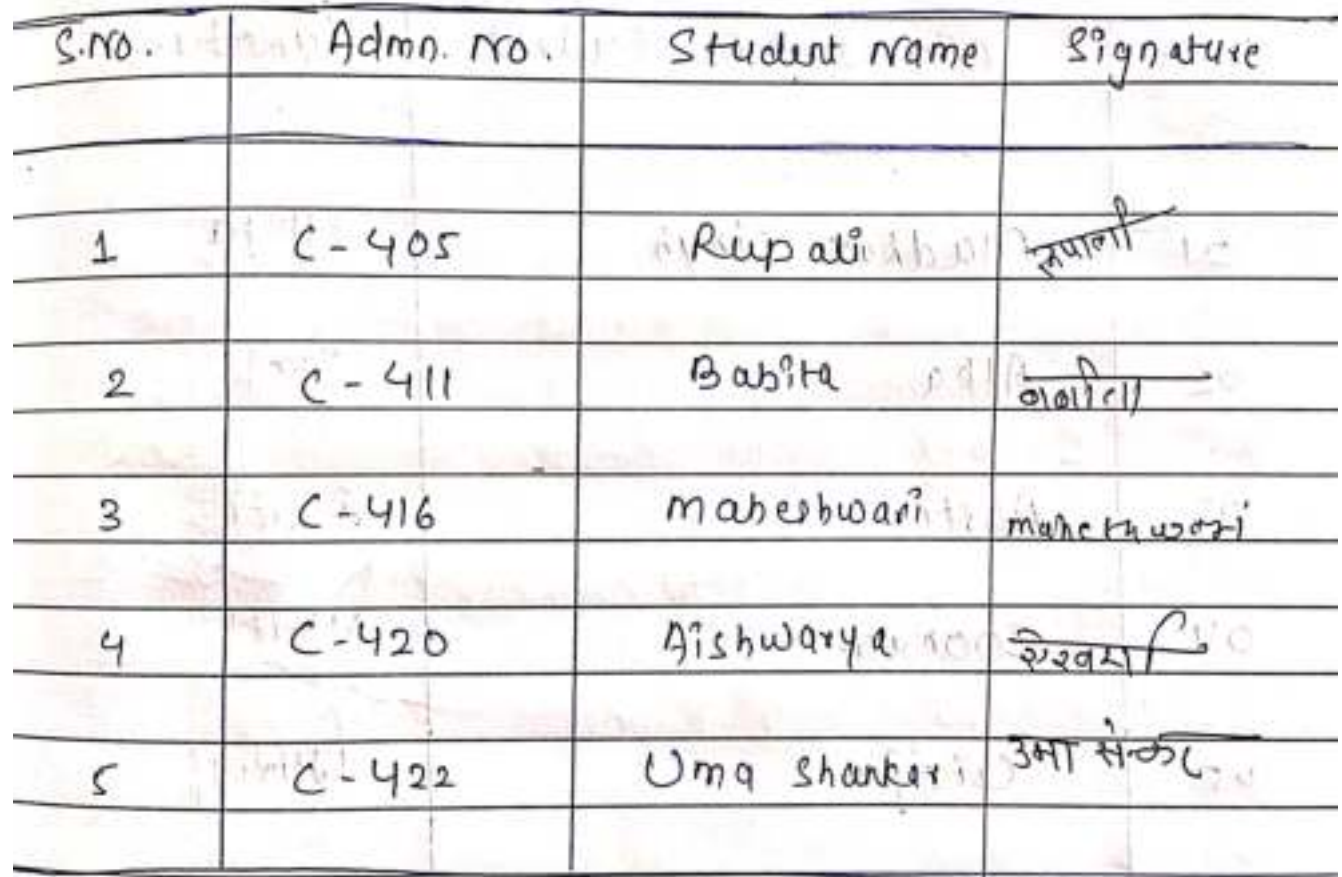 S.No. Admn. No. Student Name Signature
1 C-405 Rupali रुपाली
2 C-411 Babita बबीता
3 C-416 Maheshwari maheshwari
4 C-420 Aishwarya
5 C-422 Uma Shankar उमा